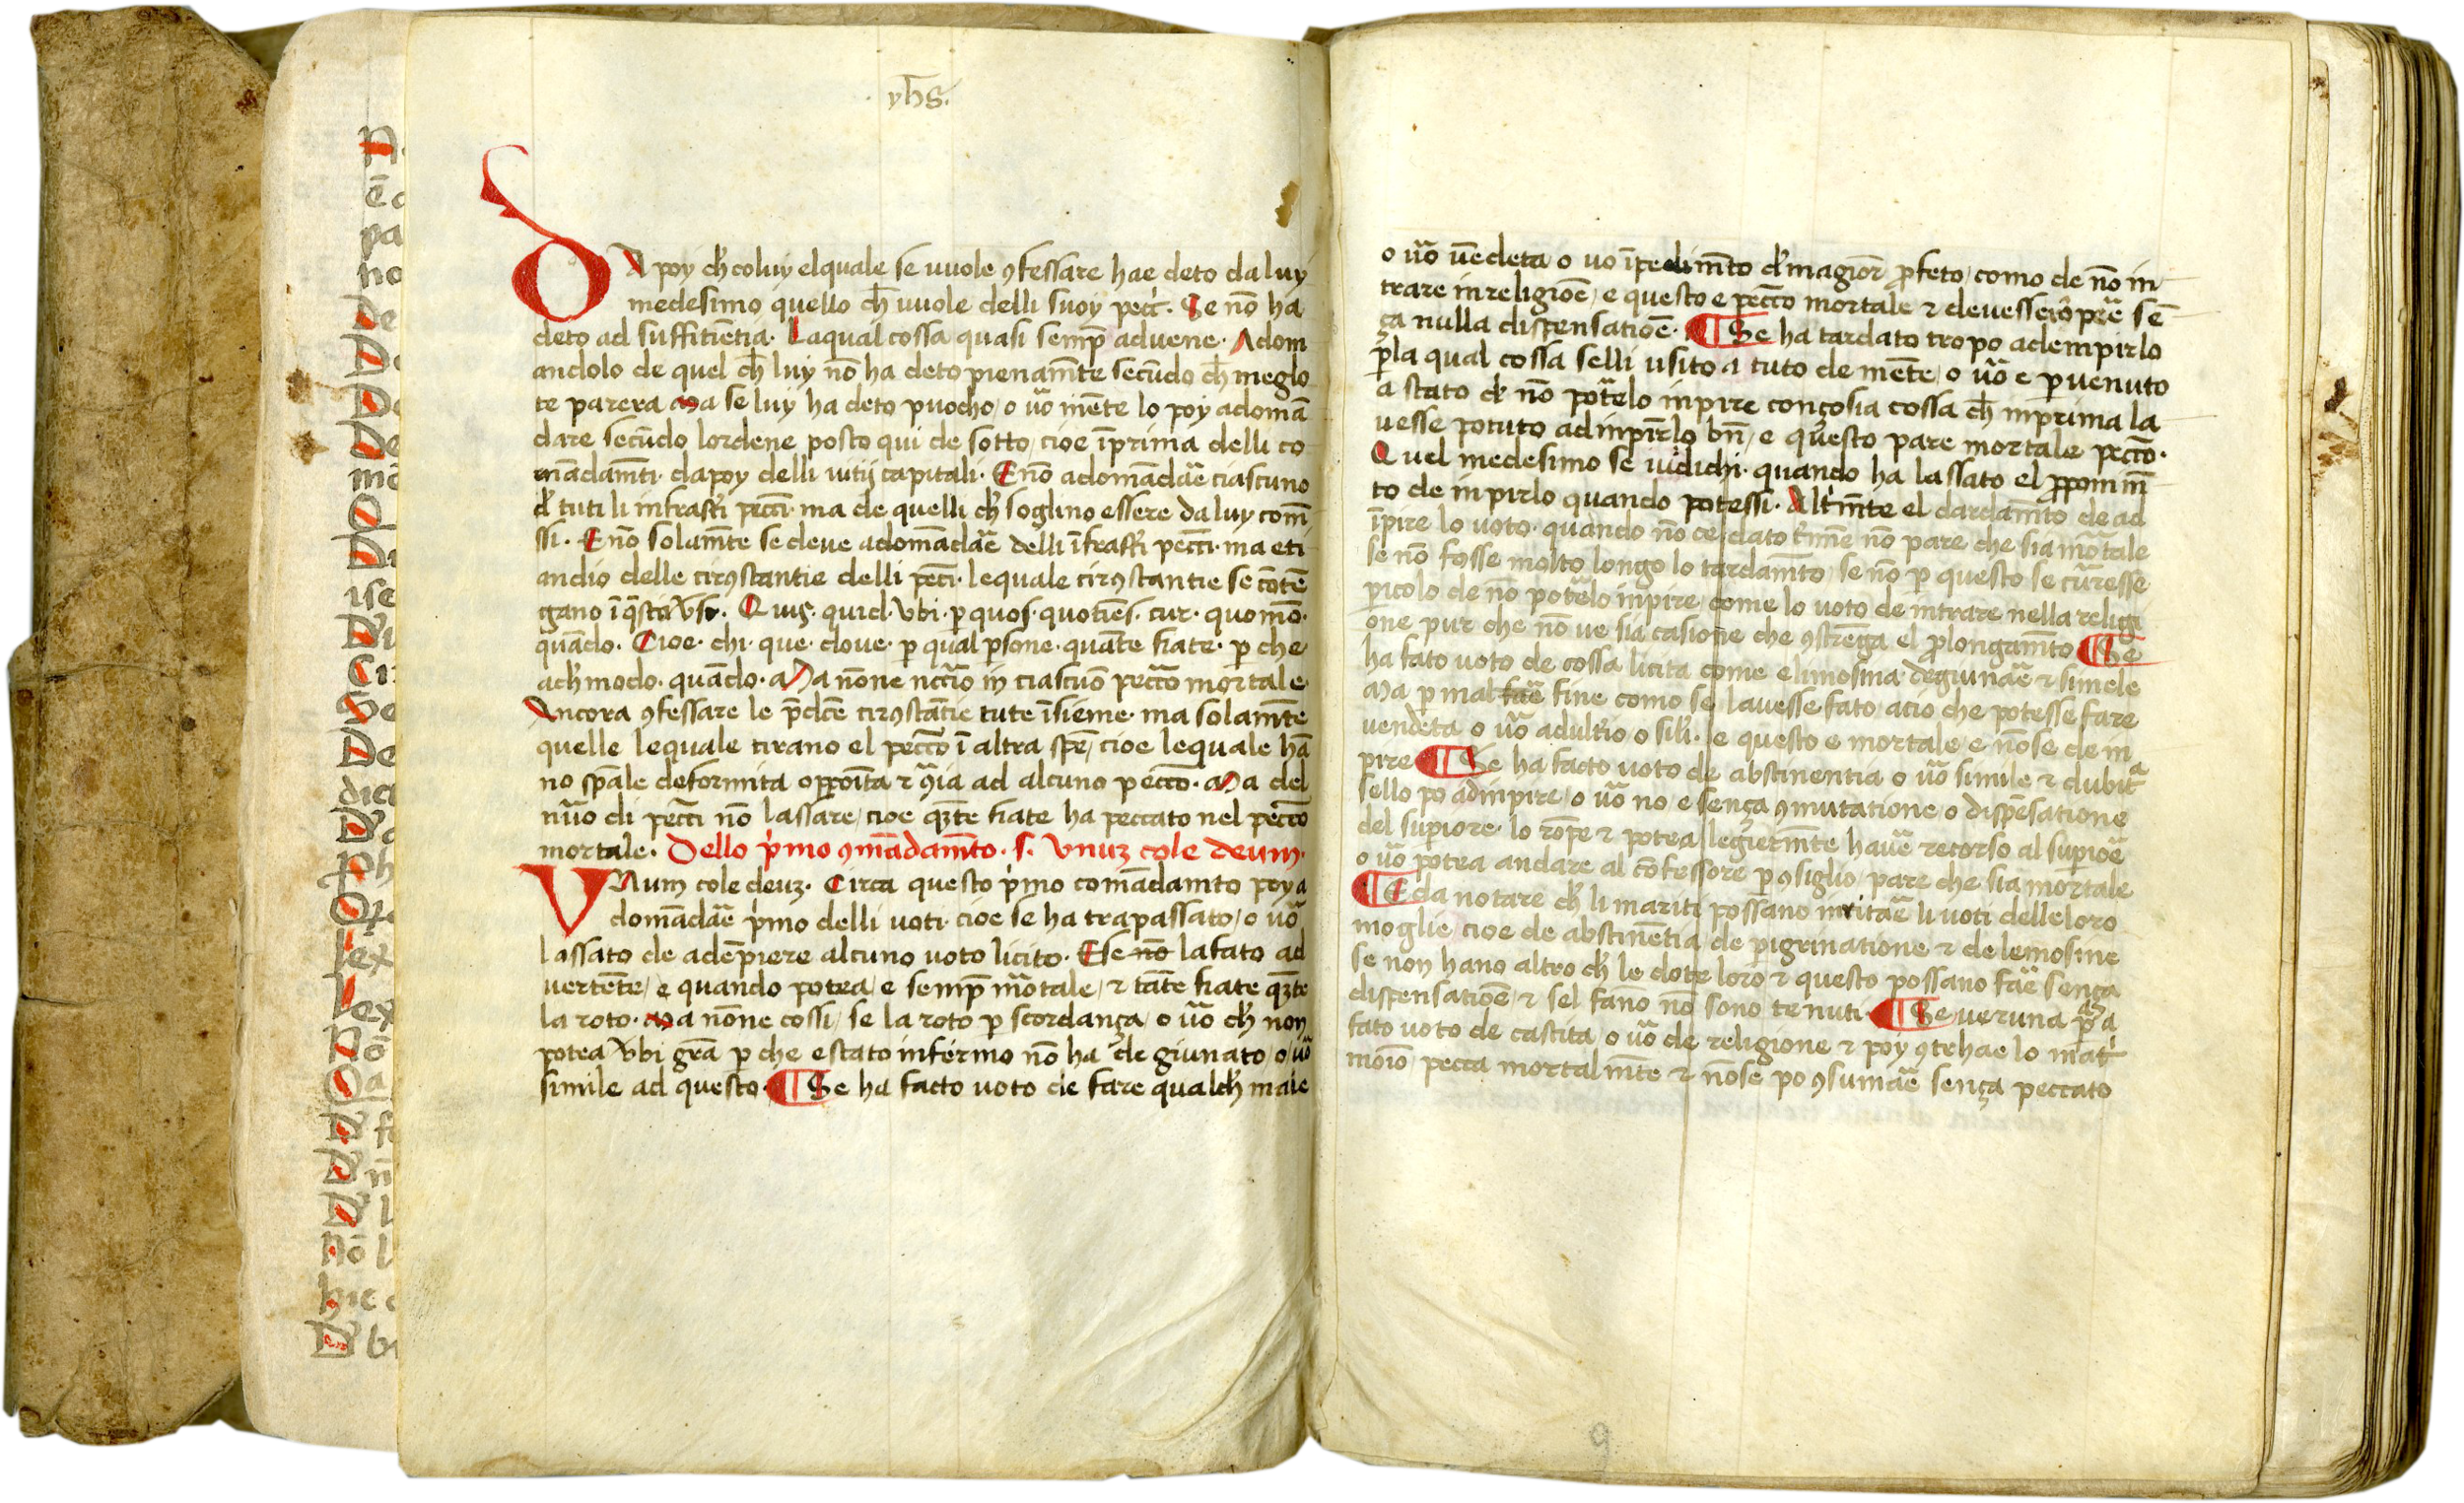 yhs.
DA poy ch̄ coluy elquale se vuole ꝯfessare hae deto da luy
medesimo quello ch̄ vuole delli suoy pecc̄. Se nō ha
deto ad suffitiētia. Laqual cossa quasi semp̄ advene. Adom
andolo de quel ch̄ luy nō ha deto pienam̄te secūdo ch̄ meglo
te parera Ma se luy ha deto puocho / o ūo mēte lo poy adomā
dare secūdo lordene posto qui de sotto / cioe īprima delli co
mādam̄ti. dapoy delli vitij capitali. E nō adomādāe ciascuno
d̄ tuti li infrasc̄ti pecc̄i. ma de quelli ch̄ soglino essere da luy com̄
ssi. E nō solam̄te se deve adomādāe delli īfrasc̄ti pecc̄i. ma eti
andio delle cirꝯstantie delli pecc̄i. lequale cirꝯstantie se cōtē
gano ī q̄sti v̄si. Quis. quid. vbi. p̱ quos. quotiēs. cur. quomō.
quādo. Cioe. chi. que. dove. p̱ qual p̱sone. quāte fiate. p̱ che
ach̄ modo. quādo. Ma nōne nc̄c̄rio in ciascūo pecc̄o mortale.
Ancora ꝯfessare le p̄dc̄e cirꝯstātie tute īsieme. ma solam̄te
quelle lequale tirano el pecc̄o ī altra spē / cioe lequale hā
no sp̄ale deformita opposita ⁊ ꝯ̄ria ad alcuno pecco. Ma del
nūo di pecc̄i nō lassare / cioe qz̄te fiate ha peccato nel pecc̄o
mortale. Dello p̄mo ꝯmādam̄to. s. Vnuz cole deum.
VNum cole deuz. Circa questo p̄mo comādamto poy a
domādāe p̄mo delli voti. cioe se ha trapassato / o ūo
lassato de adēpiere alcuno voto licito. E se no lafato ad
vertēte / e quando potea / e semp̄ mōtale / ⁊ tāte fiate qz̄te
la roto. Ma nōne cossi / se la roto p̱ scordança / o ūo ch̄ non
potea vbi grā p̱ che estato infermo nō ha degiunato / o ūo
simile ad questo. ¶ Se ha facto voto de fare qualch̄ male
o ūo vēdeta o vo īpedim̄to d̄ magior p̱feto / como de nō in
trare in religiōe / e questo e pecc̄o mortale ⁊ devesse rōp̄e sē
ça nulla dispensatiōe. ¶ Se ha tardato tropo adempirlo
p̱la qual cossa selli usito a tuto de mēte / o ūo e p̱venuto
a stato d̄ nō potelo inpire conçosia cossa ch̄ inprima la
vesse potuto adinpirlo bn̄ / e questo pare mortale pecc̄o.
Quel medesimo se iudichi. quando ha lassato el p̱ponim̄
to de inpirlo quando potessi. Alt̄m̄te el dardam̄to de ad
īpire lo voto. quando nō ce dato t̄mīe nō pare che sia mōtale
se nō fosse molto longo lo tardam̄to / se nō p̱ questo se curesse
p̱icolo de nō potelo inpire / come lo voto de intrare nella religi
one pur che nō ve sia casione che ꝯstrēga el p̱longam̄to ¶ Se
ha fato voto de cossa licita come elimosina degiunāe ⁊ simele
Ma p̱ mal fine como se lavesse fato / acio che potesse fare
vendeta o ūo adult̄io o sili. e questo e mortale / e nōse de in
pire ¶ Se ha facto voto de abstinentia o ūo simile ⁊ dubita
sello po adinpire / o ūo no e sença ꝯmutatione / o dispēsatione
del sup̱iore. lo rōpe ⁊ potea legierm̄te havē recorso al sup̱ioē
o ūo potea andare al cōfessore p̱ ꝯsiglio / pare che sia mortale
¶ E da notare ch̄ li mariti possano irritāe li voti delle loro
moglie / cioe de abstinētia / de p̱igrinatione ⁊ de lemosine
se non hano altro ch̄ le dote loro ⁊ questo possano fāe sença
dispensatiōe / ⁊ sel fanno nō sono tenuti. ¶ Se veruna p̱sona
fato voto de castita / o ūo de religione ⁊ poy ꝯtrhae lo mat̄
moīo / pecca mortalm̄te ⁊ nōse po ꝯsumāe sença peccato
9